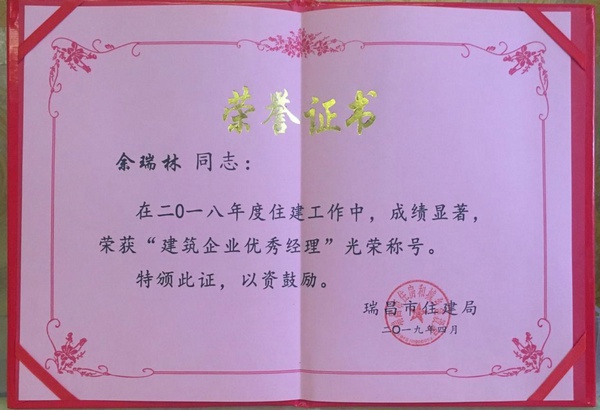 荣誉证书
余瑞林 同志：
在二0一八年度住建工作中，成绩显著，
荣获“建筑企业优秀经理”光荣称号。
特颁此证，以资鼓励。
瑞昌市住建局
二0一九年四月